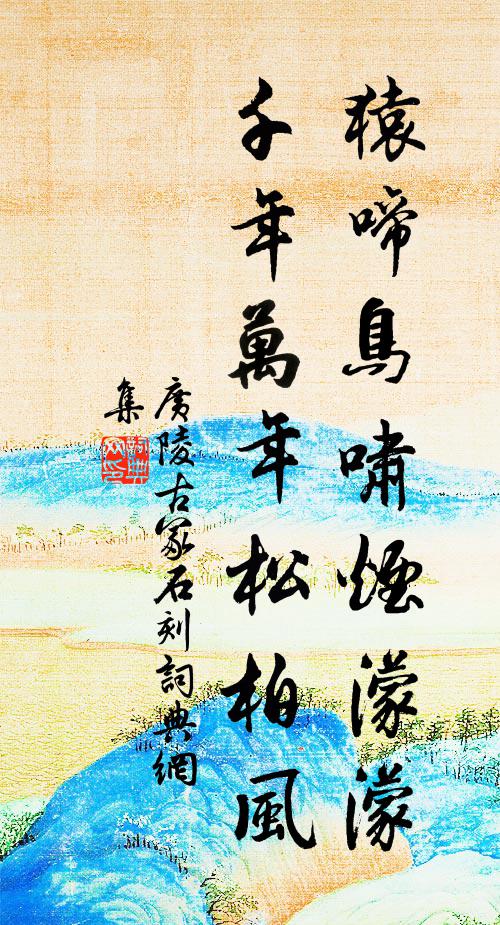 猿啼鳥嘯煙濛濛
千年萬年松柏風
廣陵古冢石刻詞典網
集